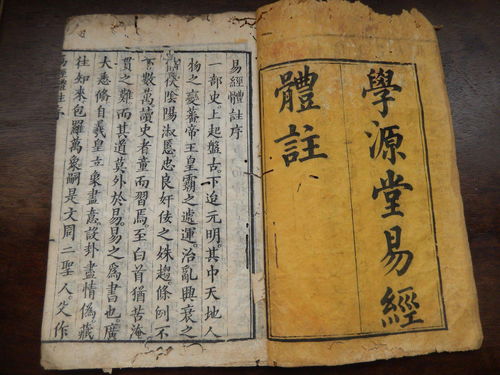 學源堂易經
體註
易經體註序
一部史上起盤古下迄元明。其中天地人
物之變蕃帝王皇霸之遞運。治亂興衰之
伏陰陽淑慝忠良奸佞之殊趨。條例不
數萬讀史者童而習焉。至白首猶苦淹
貫之難而其道莫外於易。易之為書也。廣
大悉備自羲皇古象畫意設卦盡情偽。藏
往知來包羅萬象嗣是文周二聖人。爻作